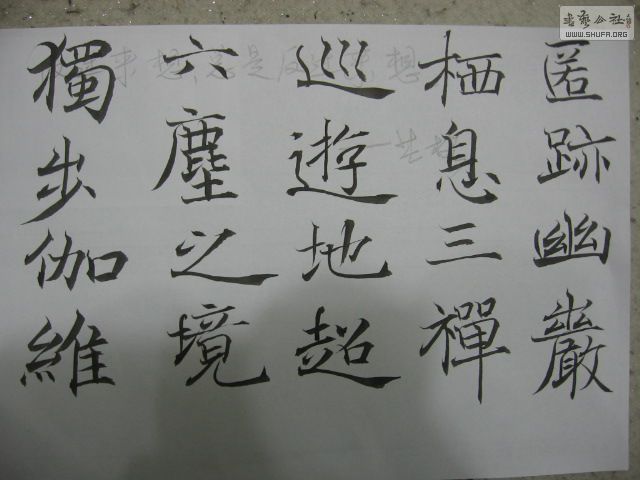 匿跡幽巖
栖息三禪
巡遊地超
六塵之境
獨步伽維
書藝公社
WWW.SHUFA.ORG